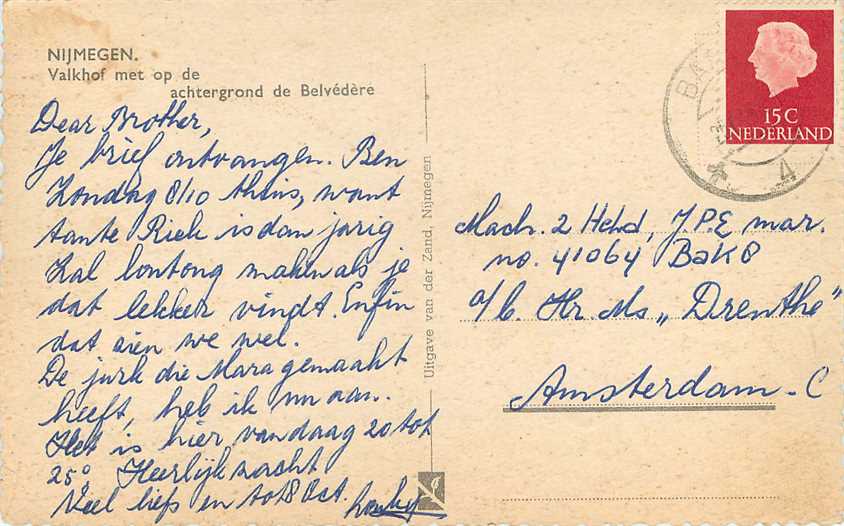 NIJMEGEN.
Valkhof met op de
achtergrond de Belvédère
Dear Brother,
Je brief ontvangen. Ben
Zondag 8/10 thuis, want
tante Riek is dan jarig
Zal lontong maken als je
dat lekker vindt. Enfin
dat zien we wel.
De jurk die Mara gemaakt
heeft, heb ik nu aan.
Het is hier vandaag 20 tot
25° Heerlijk zacht
Veel liefs en tot 8 Oct.
Uitgave van der Zand, Nijmegen
15 C
NEDERLAND
4
Mach. 2 J.P.E mar.
no. 41064 Bak 8
a/b. Hr Ms „Drenthe"
Amsterdam - C